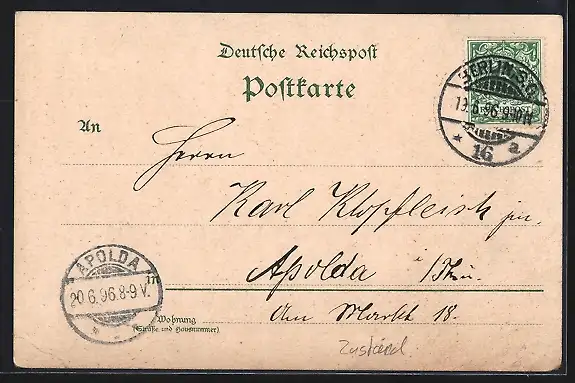 Deutsche Reichspost
Postkarte
BERLIN S.O.
19.6.96.9-10N
* 16 a
An
Herrn
Karl Klopfleisch jun.
Apolda i/Thür.
Am Markt 18.
APOLDA
20.6.96.8-9V.
Wohnung
(Straße und Hausnummer)
Zustand